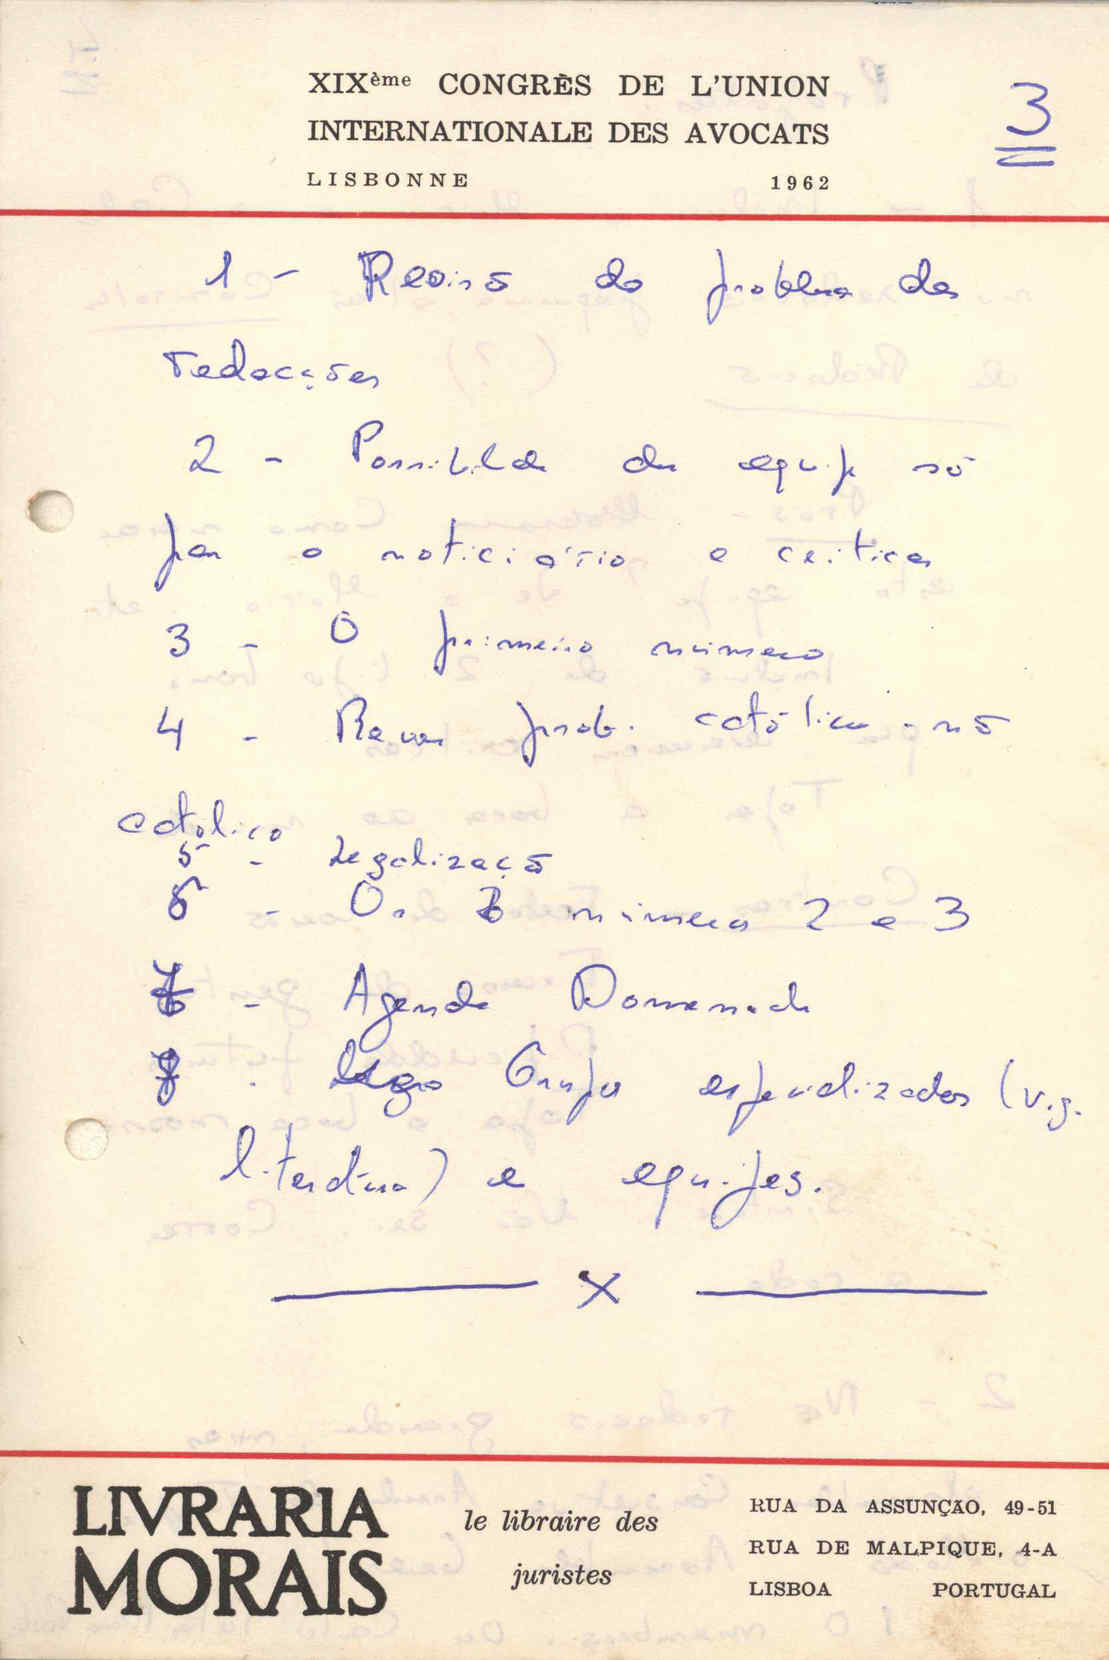 XIXème CONGRÈS DE L'UNION
INTERNATIONALE DES AVOCATS
LISBONNE 1962
3
1 - Revisõ do problema das
redacções
2 - Possibilde de equipe só
para o noticiário e crítica
3 - O primeiro número
4 - Rever prob. católico - nõ
católico
5 - Legalizaçõ
6 - Os números 2 e 3
7 - Agenda Domenach
8 - Grupos especializados (v.g.
literatura) e equipes.
X
LIVRARIA
MORAIS
le libraire des
juristes
RUA DA ASSUNÇÃO, 49-51
RUA DE MALPIQUE, 4-A
LISBOA PORTUGAL